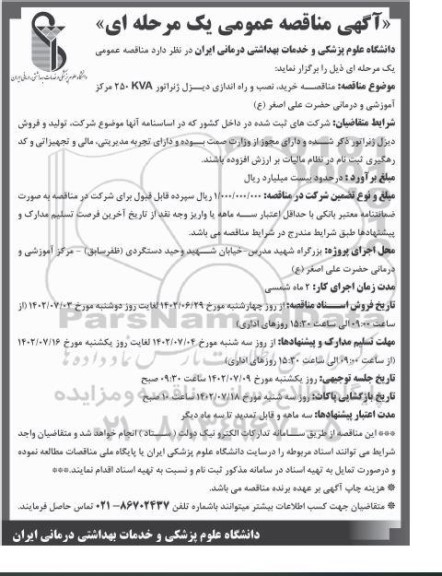 «آگهی مناقصه عمومی یک مرحله ای»
دانشگاه علوم پزشکی و خدمات بهداشتی درمانی ایران در نظر دارد مناقصه عمومی
یک مرحله ای ذیل را برگزار نماید:
موضوع مناقصه: مناقصه خرید، نصب و راه اندازی دیزل ژنراتور ۲۵۰ KVA مرکز
آموزشی و درمانی حضرت علی اصغر (ع)
شرایط متقاضیان: شرکت های ثبت شده در داخل کشور که در اساسنامه آنها موضوع شرکت، تولید و فروش
دیزل ژنراتور ذکر شده و دارای مجوز از وزارت صمت بوده و دارای تجربه مدیریتی، مالی و تجهیزاتی و کد
رهگیری ثبت نام در نظام مالیات بر ارزش افزوده باشند.
مبلغ برآورد: درحدود بیست میلیارد ریال
مبلغ و نوع تضمین شرکت در مناقصه: ۱/۰۰۰/۰۰۰/۰۰۰ ریال سپرده قابل قبول برای شرکت در مناقصه به صورت
ضمانتنامه معتبر بانکی با حداقل اعتبار سه ماهه یا واریز وجه نقد از تاریخ آخرین فرصت تسلیم مدارک و
پیشنهادها طبق شرایط مندرج در شرایط مناقصه می باشد.
محل اجرای پروژه: بزرگراه شهید مدرس-خیابان شهید وحید دستگردی (ظفرسابق) - مرکز آموزشی و
درمانی حضرت علی اصغر (ع)
مدت زمان اجرای کار: ۲ ماه شمسی
تاریخ فروش اسناد مناقصه: از روز چهارشنبه مورخ ۱۴۰۲/۰۶/۲۹ لغایت روز دوشنبه مورخ ۱۴۰۲/۰۷/۰۳ (از
ساعت ۰۹:۰۰ الی ساعت ۱۵:۳۰ روزهای اداری)
مهلت تسلیم مدارک و پیشنهادها: از روز سه شنبه مورخ ۱۴۰۲/۰۷/۰۴ لغایت روز یکشنبه مورخ ۱۴۰۲/۰۷/۱۶
(از ساعت ۰۹:۰۰ الی ساعت ۱۵:۳۰ روزهای اداری)
تاریخ جلسه توجیهی: روز یکشنبه مورخ ۱۴۰۲/۰۷/۰۹ ساعت ۰۹:۳۰ صبح
تاریخ بازگشایی پاکات: روز سه شنبه مورخ ۱۴۰۲/۰۷/۱۸ ساعت ۱۰ صبح
مدت اعتبار پیشنهادها: سه ماهه و قابل تمدید تا سه ماه دیگر
*** این مناقصه از طریق سامانه تدارکات الکترونیک دولت (ستاد) انجام خواهد شد و متقاضیان واجد
شرایط می توانند اسناد مربوطه را درسایت دانشگاه علوم پزشکی ایران یا پایگاه ملی مناقصات مطالعه نموده
و درصورت تمایل به تهیه اسناد در سامانه مذکور ثبت نام و نسبت به تهیه اسناد اقدام نمایند.***
* هزینه چاپ آگهی بر عهده برنده مناقصه می باشد.
* متقاضیان جهت کسب اطلاعات بیشتر میتوانند باشماره تلفن ۸۶۷۰۲۴۳۷-۰۲۱ تماس حاصل فرمایند.
دانشگاه علوم پزشکی و خدمات بهداشتی درمانی ایران